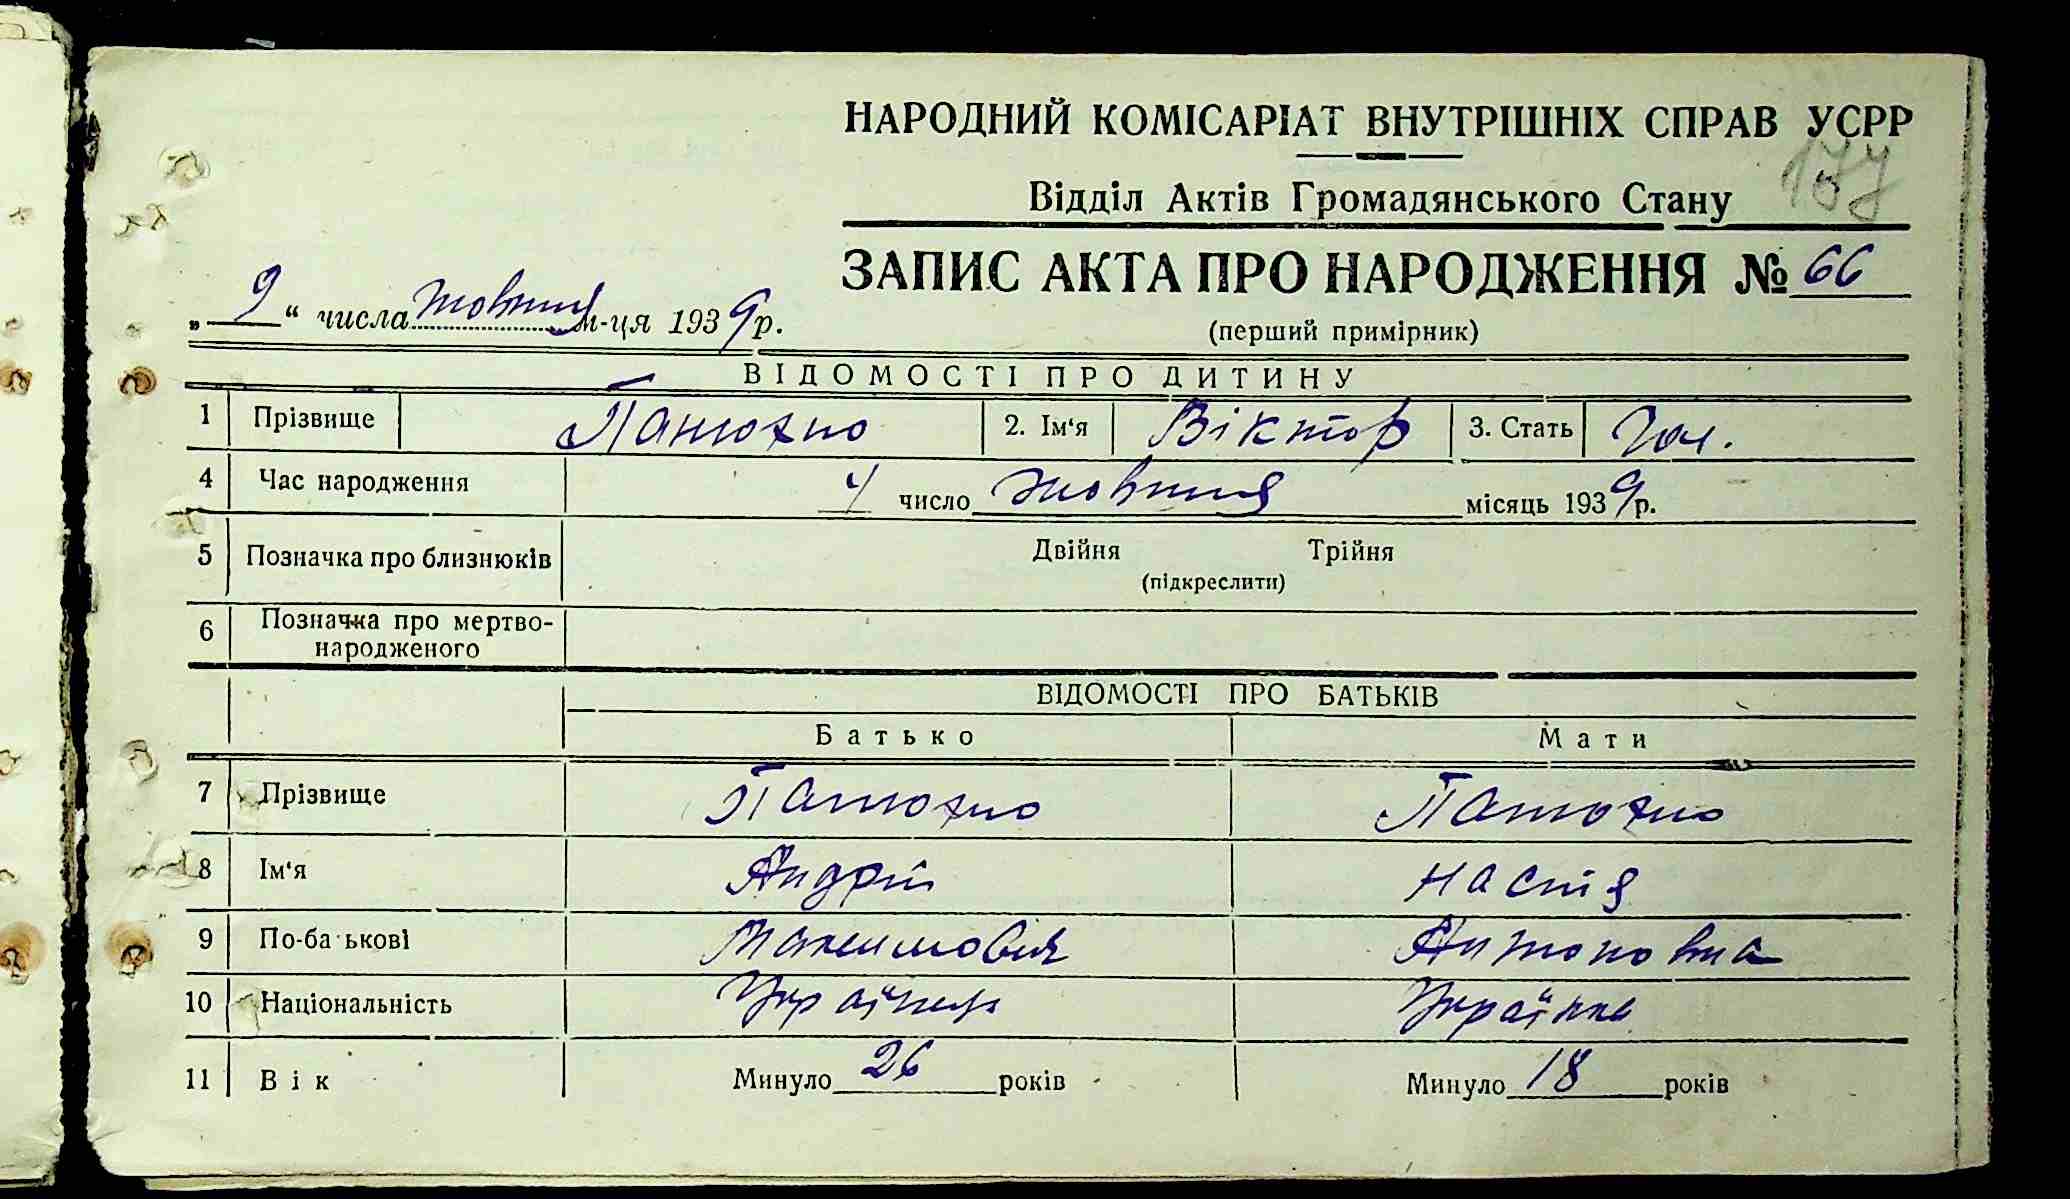 НАРОДНИЙ КОМІСАРІАТ ВНУТРІШНІХ СПРАВ УСРР
177
Відділ Актів Громадянського Стану
ЗАПИС АКТА ПРО НАРОДЖЕННЯ № 66
„ 9 “ числа жовтня м-ця 1939 р.
(перший примірник)
ВІДОМОСТІ ПРО ДИТИНУ
1 Прізвище Панюхно 2. Ім'я Віктор 3. Стать Чол.
4 Час народження 4 число жовтня місяць 1939 р.
5 Позначка про близнюків Двійня Трійня
(підкреслити)
6 Позначка про мертво-
народженого
ВІДОМОСТІ ПРО БАТЬКІВ
Батько Мати
7 Прізвище Панюхно Панюхно
8 Ім'я Андрій Настя
9 По-ба ькові Максимовіч Антоновна
10 Національність Українець Українка
11 Вік Минуло 26 років Минуло 18 років